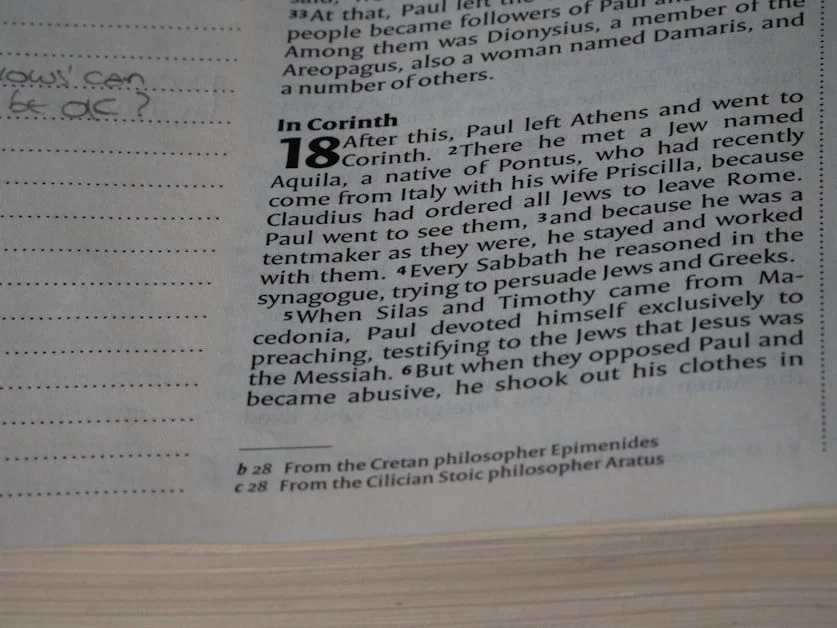 33At that, Paul left the
people became followers of Paul and
Among them was Dionysius, a member of the
Areopagus, also a woman named Damaris, and
a number of others.
In Corinth
18 After this, Paul left Athens and went to
Corinth. 2There he met a Jew named
Aquila, a native of Pontus, who had recently
come from Italy with his wife Priscilla, because
Claudius had ordered all Jews to leave Rome.
Paul went to see them, 3and because he was a
tentmaker as they were, he stayed and worked
with them. 4Every Sabbath he reasoned in the
synagogue, trying to persuade Jews and Greeks.
5When Silas and Timothy came from Ma-
cedonia, Paul devoted himself exclusively to
preaching, testifying to the Jews that Jesus was
the Messiah. 6But when they opposed Paul and
became abusive, he shook out his clothes in
b 28 From the Cretan philosopher Epimenides
c 28 From the Cilician Stoic philosopher Aratus
can
be ac?